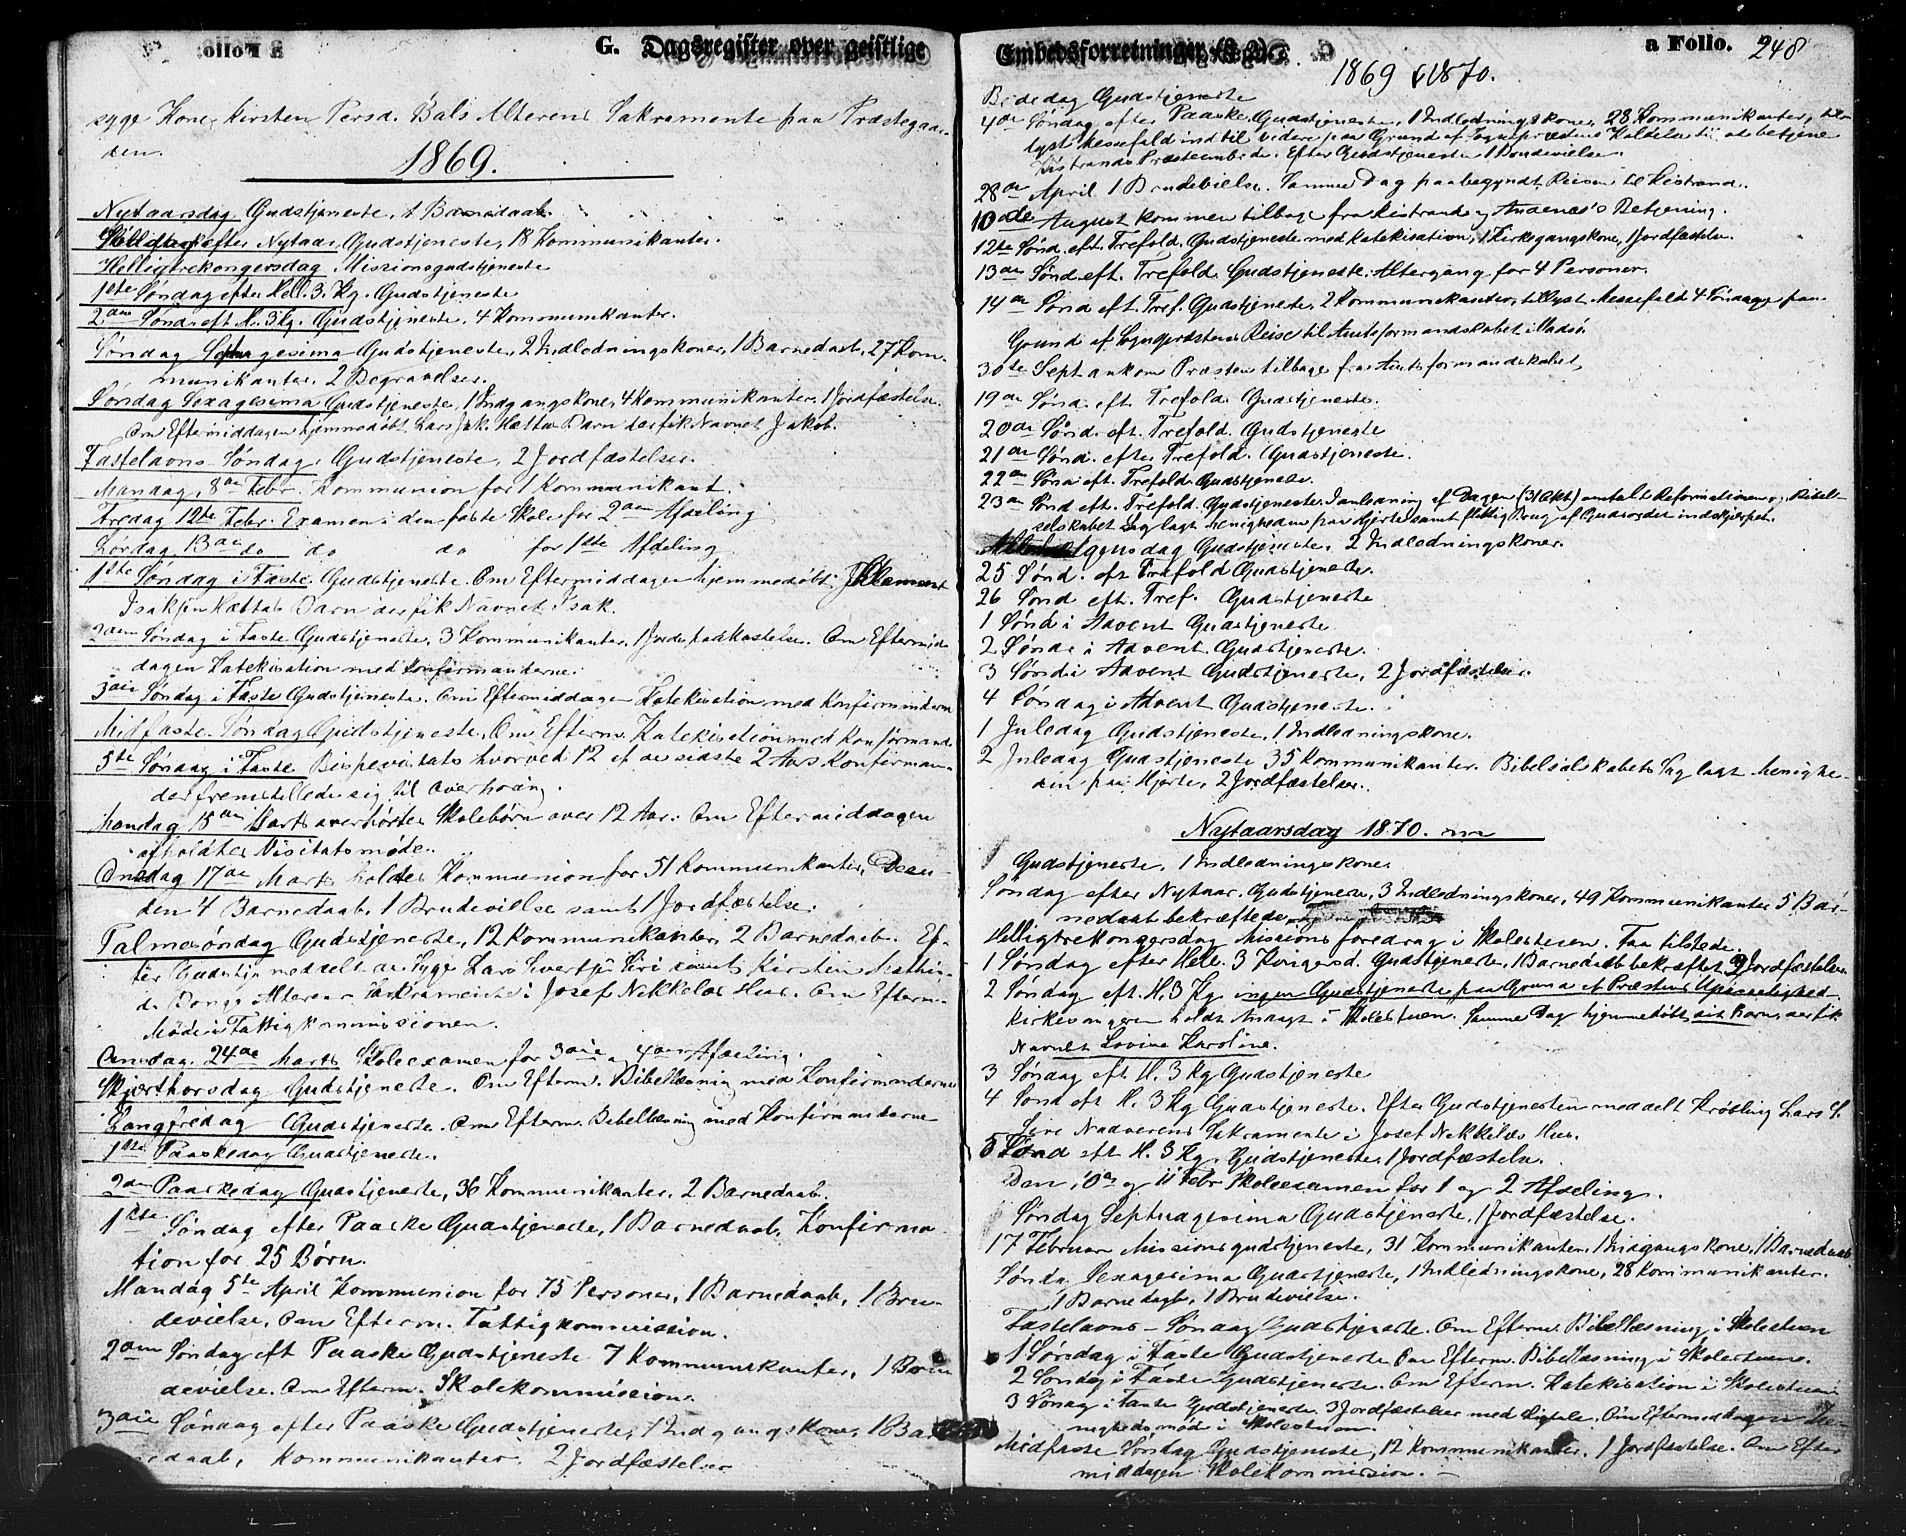 G. Dagsregister over geistlige
syge Kone Kirsten Persd. Bals Alterens Sakramente paa Præstegaar-
den.
1869.
Nytaarsdag Gudstjeneste, 1 Barnedaab.
Søndag efter Nytaar Gudstjeneste, 18 Kommunikanter.
Helligtrekongersdag Missionsgudstjeneste
1ste Søndag efter Hell. 3. Kg. Gudstjeneste
2den Sønd. eft H. 3 Kg. Gudstjeneste, 4 Kommunikanter.
Søndag Septuagesima Gudstjeneste, 2 Indledningskoner, 1 Barnedaab, 27 Kom-
munikanter. 2 Begravelser.
Søndag Sexagesima Gudstjeneste, 1 Indgangskone, 4 Kommunikanter, 1 Jordfæstelse.
Om Eftermiddagen hjemmedøbt Lars Jak. Hættas Barn der fik Navnet Jakob.
Fastelavns Søndag. Gudstjeneste, 2 Jordfæstelser.
Mandag, 8de Febr. Kommunion for 1 Kommunikant.
Fredag 12te Febr. Examen i den faste Skole for 2den Afdeling
Lørdag 13de do do do for 1ste Afdeling
1ste Søndag i Faste Gudstjeneste. Om Eftermiddagen hjemmedøbt Klement
Isaksen Hættas Barn der fik Navnet Isak.
2den Søndag i Faste Gudstjeneste, 3 Kommunikanter, 1 Jordpaakastelse. Om Eftermid-
dagen Katekisation med Konfirmanderne.
3die Søndag i Faste Gudstjeneste. Om Eftermiddagen Katekisation med Konfirmanderne
Midfaste Søndag Gudstjeneste, Om Efterm. Katekisation med Konfirmand.
5te Søndag i Faste Bispevisitats hvorved 12 af de sidste 2 Aars Konfirman-
der fremstillede sig til Overhøring.
Mandag 15de Marts overhørtes Skolebørn over 12 Aar. Om Eftermiddagen
afholdtes Visitatsmøde.
Onsdag 17de Marts holdtes Kommunion for 51 Kommunikanter, Desu-
den 4 Barnedaab, 1 Brudevielse samt 1 Jordfæstelse.
Palmesøndag Gudstjeneste, 12 Kommunikanter, 2 Barnedaab. Ef-
ter Gudstj. meddelt de Syge Lars Sivertsen Siri samt Kirsten Mathis-
d. Alterens Sakramente i Josef Nikkelas Hus. Om Efterm.
Møde i Fattigkommissionen.
Onsdag 24de Marts Skoleexamen for 3die og 4de Afdeling.
Skjærthorsdag Gudstjeneste. Om Efterm. Bibellæsning med Konfirmanderne
Langfredag Gudstjeneste. Om Efterm. Bibellæsning med Konfirmanderne
1ste Paaskedag Gudstjeneste.
2den Paaskedag Gudstjeneste, 36 Kommunikanter, 2 Barnedaab.
1ste Søndag efter Paaske Gudstjeneste, 1 Barnedaab, Konfirma-
tion for 25 Børn.
Mandag 5te April Kommunion for 75 Personer, 1 Barnedaab, 1 Bru-
devielse, Om Efterm. Fattigkommission.
2den Søndag eft Paaske Gudstjeneste 7 Kommunikanter, 1 Bru-
devielse. Om Efterm. Skolekommission.
3die Søndag efter Paaske Gudstjeneste, 1 Indgangskone, 1 Bar-
nedaab, Kommunikanter. 2 Jordfæstelser
Embedsforretninger (§ 2).
a Folio. 248
1869 & 1870.
Bededag Gudstjeneste
4de Søndag efter Paaske, Gudstjeneste, 1 Indledningskone, 28 Kommunikanter, til-
lyst Messefald indtil videre paa Grund af Sognepræstens Kaldelse til at betjene
Kistrands Præsteembede. Efter Gudstjeneste 1 Brudevielse.
28de April 1 Brudevielse. Samme Dag paabegyndt Reisen til Kistrand.
10de August kommen tilbage fra Kistrands og Andenæs's Betjening.
12te Sønd. eft. Trefold. Gudstjeneste med Katekisation, 1 Kirkegangskone, 1 Jordfæstelse.
13de Sønd. eft. Trefold. Gudstjeneste. Altergang for 4 Personer.
14de Sønd. eft. Tref. Gudstjeneste, 2 Kommunikanter, tillyst Messefald 4 Søndage paa
Grund af Sognepræstens Reise til Amtsformandskabet i Vadsø.
30te Sept ankom Præsten tilbage fra Amtsformandskabet.
19de Sønd. eft. Trefold. Gudstjeneste.
20de Sønd. eft. Trefold. Gudstjeneste
21de Sønd. efter Trefold. Gudstjeneste.
22de Sønd. eft. Trefold. Gudstjeneste
23de Sønd eft. Trefold. Gudstjeneste. I anledning af Dagen (31 Okt) omtalt Reformationen og Bibel-
selskabet Sag lagt Menigheden paa Hjerte samt flittig Brug af Gudsordet indskjerpet.
Allehelgensdag Gudstjeneste, 2 Indledningskoner.
25 Sønd. eft Trefold Gudstjeneste.
26 Sønd eft. Tref. Gudstjeneste
1 Sønd i Advent Gudstjeneste
2 Sønd. i Advent. Gudstjeneste.
3 Sønd i Advent Gudstjeneste, 2 Jordfæstelser.
4 Søndag i Advent Gudstjeneste.
1 Juledag Gudstjeneste, 1 Indledningskone.
2 Juledag Gudstjeneste 35 Kommunikanter. Bibelselskabets Sag lagt Menighe-
den paa Hjerte, 2 Jordfæstelser.
Nytaarsdag 1870.
Gudstjeneste, 1 Indledningskone.
Søndag efter Nytaar. Gudstjeneste, 3 Indledningskoner, 49 Kommunikanter 5 Bar-
nedaab bekræftede
Helligtrekongersdag Missions foredrag i Skolestuen. Faa tilstede.
1 Søndag efter Hell. 3 Kongersd. Gudstjeneste, 1 Barnedaab bekræftet 3 Jordfæstelser
2 Søndag eft. H. 3 Kg ingen Gudstjeneste paa Grund af Præstens Upasselighed
Kirkesangeren holdt Andagt i Skolestuen. Samme Dag hjemmedøbt sit Barn, der fik
Navnet Lovine Karoline.
3 Søndag eft H. 3 Kg Gudstjeneste
4 Sønd eft H. 3 Kg Gudstjeneste. Efter Gudstjenesten meddelt Krøbling Lars S.
Siri Nadverens Sakramente i Josef Nikkelas Hus.
5 Sønd eft H. 3 Kg. Gudstjeneste, 1 Jordfæstelse.
Den 10de og 11 Febr Skoleexamen for 1 og 2 Afdeling.
Søndag Septuagesima Gudstjeneste, 1 Jordfæstelse.
17 Februar Missionsgudstjeneste, 31 Kommunikanter, 1 Indgangskone, 1 Barnedaab
Sønda. Sexagesima Gudstjeneste, 1 Indledningskone, 28 Kommunikanter.
1 Barnedaab, 1 Brudevielse.
Fastelavns-Søndag Gudstjeneste. Om Efterm. Bibellæsning i Skolestuen
1 Søndag i Faste Gudstjeneste Om Efterm. Bibellæsning i Skolestuen.
2 Søndag i Faste Gudstjeneste. Om Efterm. Katekisation i Skolestuen
3 Søndag i Faste Gudstjeneste. 3 Jordfæstelser med Ligtale. Om Eftermiddagen Me-
nighedsmøde i Skolestuen.
Midfaste Søndag Gudstjeneste, 12 Kommunikanter, 1 Jordfæstelse. Om Efter
middagen Skolekommission. –